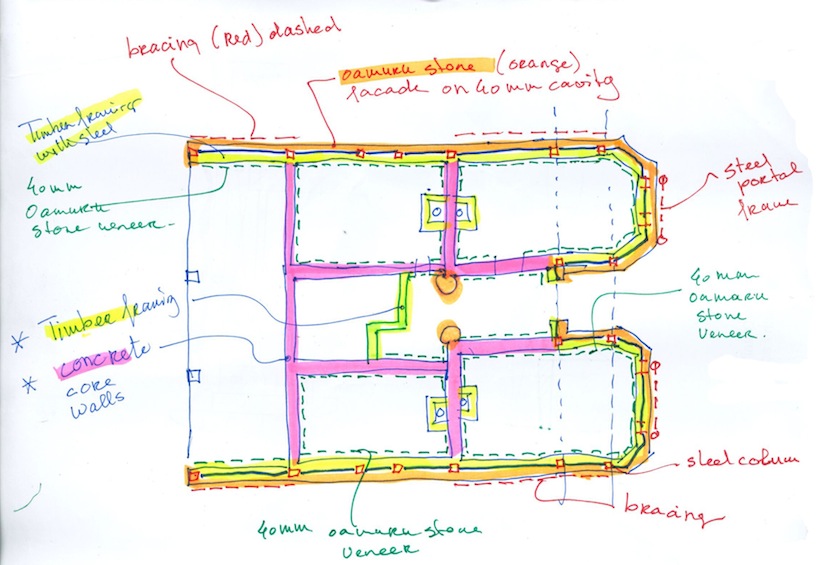 bracing (Red) dashed
oamuru stone (orange)
facade on 40mm cavity
Timber framing
with steel
40mm
Oamuru
stone veneer.
steel
portal
frame
40mm
oamaru
stone
veneer.
* Timber framing
* concrete
core
walls
steel column
bracing
40mm oamaru stone
veneer